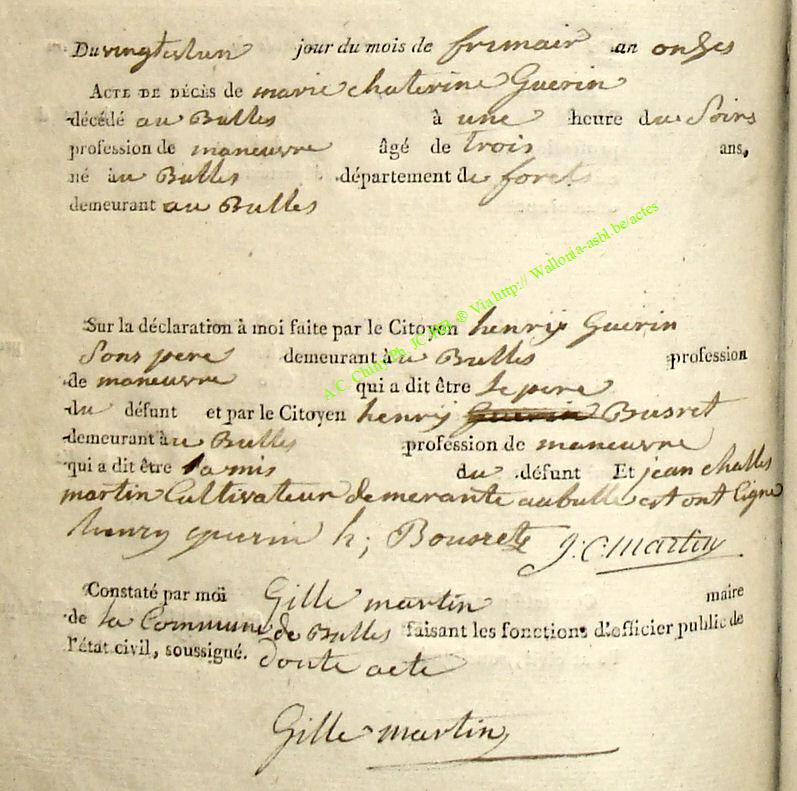 Du vingtestun jour du mois de frimair an onzes
ACTE DE DÉCÈS de marie chaterine Guerin
décédé au Bulles à une heure du Soirs
profession de maneuvre âgé de trois ans,
né àu Bulles département de foret
demeurant au Bulles
Sur la déclaration à moi faite par le Citoyen henrij Guerin
Sons pere demeurant àu Bulles profession
de maneuvre qui a dit être le pere
du défunt et par le Citoyen henrij Guerin Busret
demeurant àu Bulles profession de maneuvre
qui a dit être l'amis du défunt Et jean challes
martin Cultivateur demerante aubulle est ont Signe
henry guerin h; Bousret J: C: martin
Constaté par moi Gille martin maire
de la Commune de Bulles faisant les fonctions d'officier public de
l'état civil, soussigné. donte acte
Gille martin
A.C. Chiny Ph. JC HR ® Via http:// Wallonia-asbl.be/actes